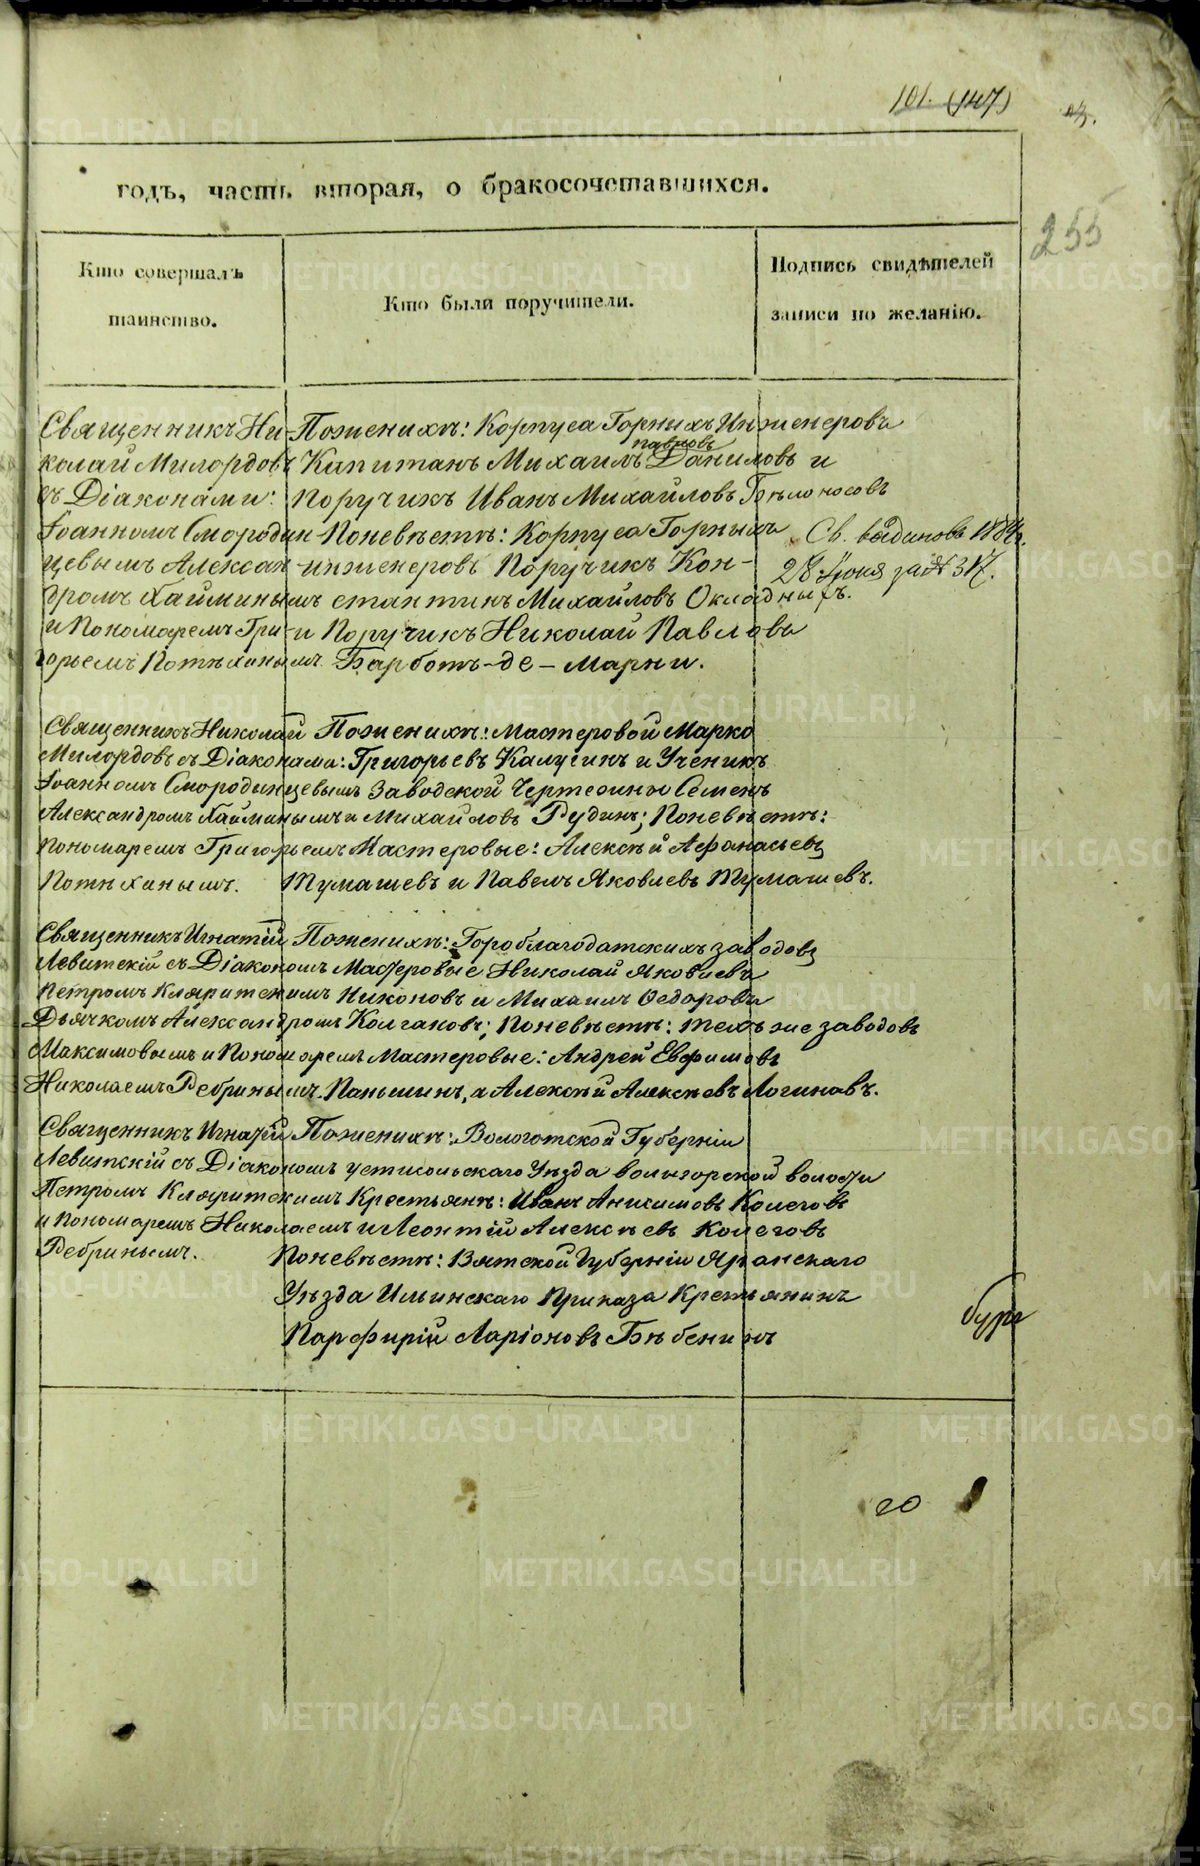 101. (147)
годъ, часть вторая, о бракосочетавшихся.
255
Кто совершалъ
таинство.
Кто были поручители.
Подпись свидѣтелей
записи по желанію.
Священникъ Ни-
колай Милордовъ
съ Діаконами:
Іоанномъ Смородин
цевымъ Алексан
дромъ Хайминымъ
и Пономаремъ Гри-
горьемъ Потѣхинымъ
Поженихѣ: Корпуса Горныхъ Инженеровъ
павловъ
Капитанъ Михаилъ Даниловъ и
Поручикъ Иванъ Михайловъ Бѣлоносовъ
Поневѣстѣ: Корпуса Горныхъ
инженеровъ Поручикъ Кон-
стантинъ Михайловъ Окладныхъ.
и Поручикъ Николай Павловъ
Барботъ-де-Марни.
Св. выдиновъ 188
28 Іюня за № 317.
Священникъ Николай
Милордовъ съ Діаконами:
Іоанномъ Смородинцевымъ
Александромъ Хайминымъ и
Пономаремъ Григорьемъ
Потѣхинымъ.
Поженихѣ: Мастеровой Марко
Григорьевъ Калугинъ и Ученикъ
Заводской Чертежной Семенъ
Михайловъ Рудинъ; Поневѣстѣ:
Мастеровые: Алексѣй Афанасьевъ
Тумашевъ и Павелъ Яковлевъ Тумашевъ.
Священникъ Игнатій
Левитскій съ Діакономъ
Петромъ Кляритскимъ
Дьячкомъ Александромъ
Максимовымъ и Пономаремъ
Николаемъ Ребринымъ.
Поженихѣ: Гороблагодатскихъ заводовъ
Мастеровые Николай Яковлевъ
Никоновъ и Михаилъ Федоровъ
Колгановъ; Поневѣстѣ: тѣхъ же заводовъ
Мастеровые: Андрей Евфимовъ
Паньшинъ, и Алексѣй Алексѣевъ Логиновъ.
Священникъ Игнатій
Левитскій съ Діакономъ
Петромъ Кляритскимъ
и Пономаремъ Николаемъ
Ребринымъ.
Поженихѣ: Вологотской Губерніи
устисольскаго Уѣзда волыгорской волости
Крестьянѣ: Иванъ Анисимовъ Колеговъ
и Леонтій Алексѣевъ Колеговъ
Поневѣстѣ: Вятской Губерніи Яранскаго
Уѣзда Ильинскаго Приказа Крестьянинъ
Парфирій Ларіоновъ Бѣбенинъ
METRIKI.GASO-URAL.RU